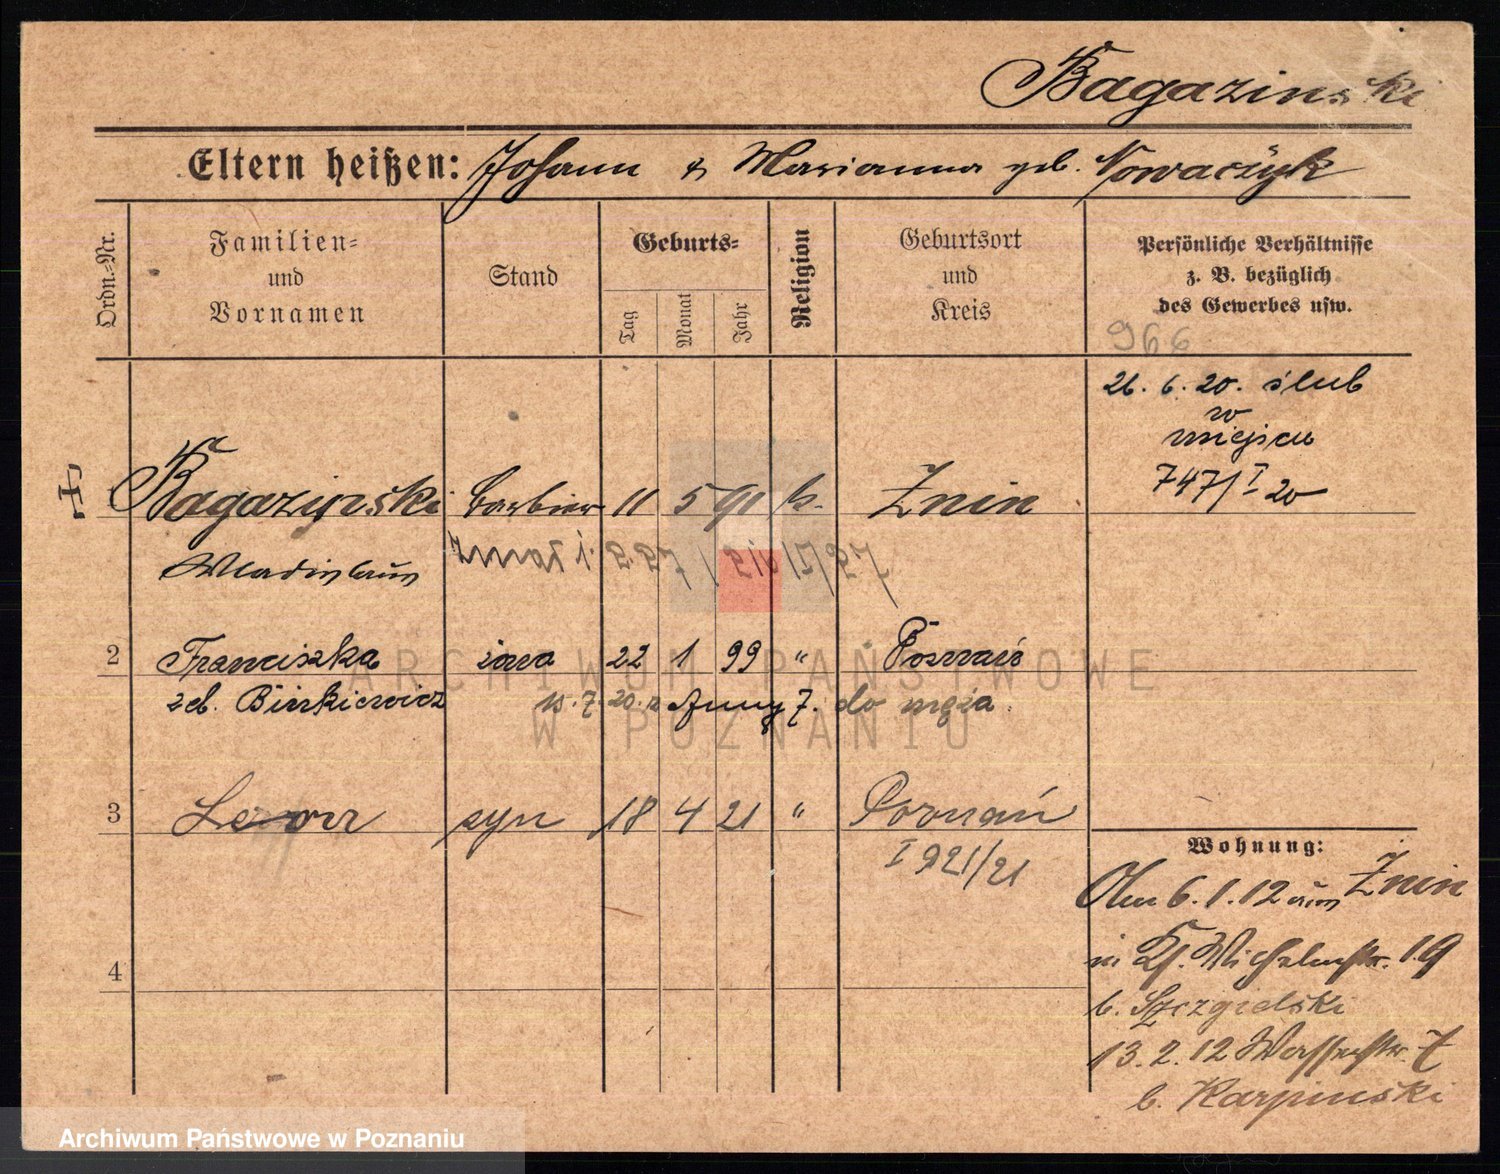 Bagazinski
Eltern heißen: Johann & Marianna geb. Nowaczyk
Ordn.-Nr.
Familien- und Vornamen
Stand
Geburts-
Tag
Monat
Jahr
Religion
Geburtsort und Kreis
Persönliche Verhältnisse
z. B. bezüglich
des Gewerbes usw.
966
26. 6. 20. ślub
w
miejscu
747/I 20
Bagazinski Barbier 11 5 91 k. Znin
Wladislaus
2 Franciszka żona 22 1 99 " Poznań
15. 7. 20. z 7. do męża
3 Leon syn 18 4 21 " Poznań
I 921/21
4
Wohnung:
6. 1. 12 aus Znin
in Kl. 19
b. Szczygielski
13. 2. 12 Wasserstr. 7
b. Karpinski
ARCHIWUM PAŃSTWOWE
W POZNANIU
Archiwum Państwowe w Poznaniu